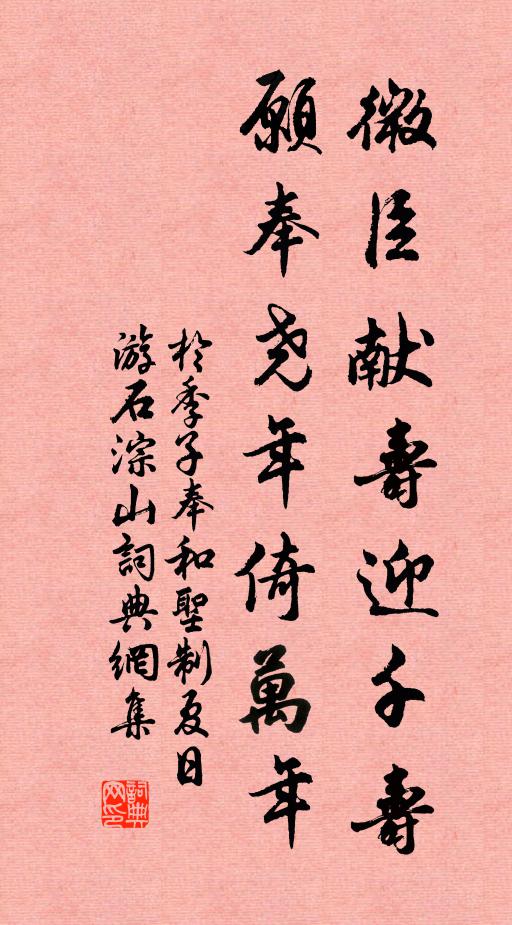 微臣献壽迎千壽
願奉尧年倚萬年
於季子奉和聖制夏日
游石淙山詞典網集
詞典网印